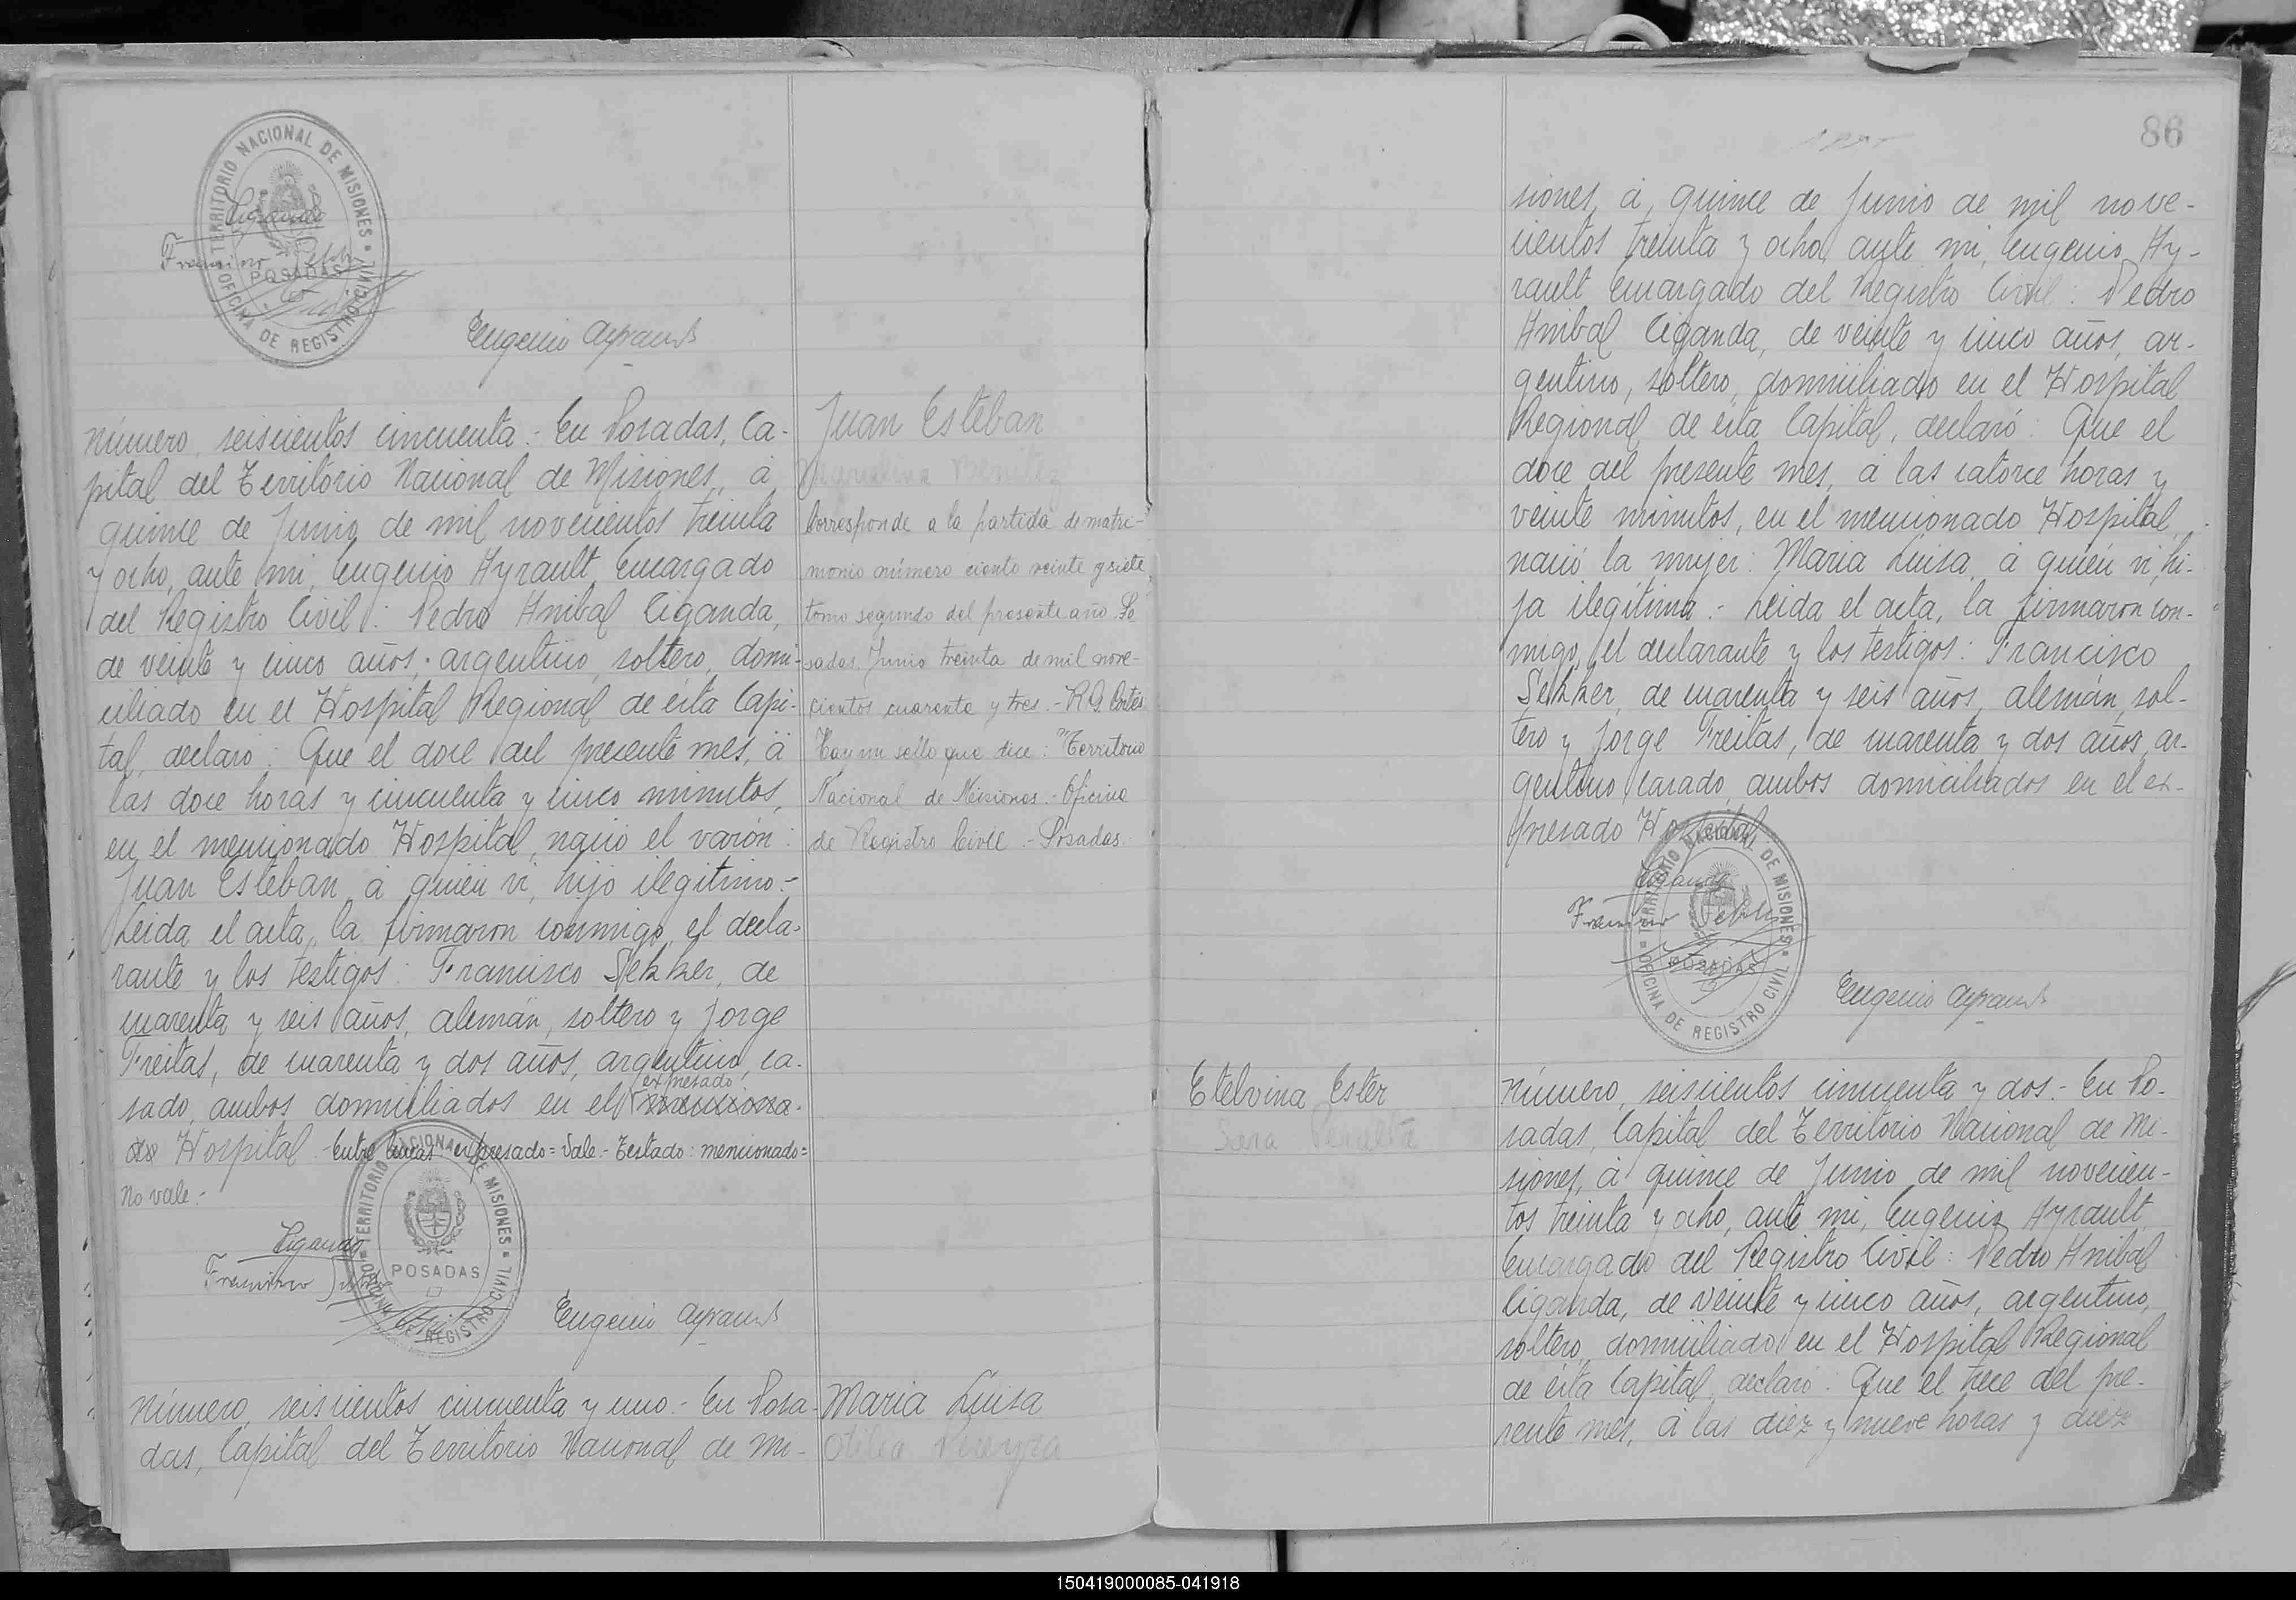 TERRITORIO NACIONAL DE MISIONES
OFICINA DE REGISTRO CIVIL
POSADAS
Ciganda
Eugenio Ayrault
Número, seiscientos cincuenta.- En Posadas, Ca-
pital del Territorio Nacional de Misiones, á
quince de Junio de mil novecientos treinta
y ocho, ante mi, Eugenio Ayrault Encargado
del Registro Civil: Pedro Anibal Ciganda,
de veinte y cinco años, argentino, soltero, domi-
ciliado en el Hospital Regional de ésta Capi-
tal, declaró: Que el doce del presente mes, á
las doce horas y cincuenta y cinco minutos,
en el mencionado Hospital, nació el varón:
Juan Esteban, á quien vi, hijo ilegitimo.-
Leida el acta, la firmaron conmigo, el decla-
rante y los testigos: Francisco Sekker, de
cuarenta y seis años, alemán, soltero y Jorge
Freitas, de cuarenta y dos años, argentino, ca-
expresado
sado, ambos domiciliados en el menciona-
do Hospital. Entre lineas: expresado=Vale.- Testado: mencionado=
No vale.-
TERRITORIO NACIONAL DE MISIONES
OFICINA DE REGISTRO CIVIL
POSADAS
Ciganda
Eugenio Ayrault
Número, seiscientos cincuenta y uno.- En Posa-
das, Capital del Territorio Nacional de Mi-
Juan Esteban
Benitez
Corresponde a la partida de matri-
monio número ciento veinte y siete,
tomo segundo del presente año. Po
sadas, Junio treinta de mil nove-
cientos cuarenta y tres.- R.G. Cortés
Hay un sello que dice: "Territorio
Nacional de Misiones.- Oficina
de Registro Civil.- Posadas.
Maria Luisa
Otilia Pereyra
86
siones, á quince de Junio de mil nove-
cientos treinta y ocho, ante mi, Eugenio Ay-
rault Encargado del Registro Civil: Pedro
Anibal Ciganda, de veinte y cinco años, ar-
gentino, soltero, domiciliado en el Hospital
Regional de ésta Capital, declaró: Que el
doce del presente mes, á las catorce horas y
veinte minutos, en el mencionado Hospital,
nació la mujer: Maria Luisa, á quien vi, hi-
ja ilegitima.- Leida el acta, la firmaron con-
migo, el declarante y los testigos: Francisco
Sekker, de cuarenta y seis años, alemán, sol-
tero y Jorge Freitas, de cuarenta y dos años, ar-
gentino, casado, ambos domiciliados en el ex-
presado Hospital.
TERRITORIO NACIONAL DE MISIONES
OFICINA DE REGISTRO CIVIL
POSADAS
Ciganda
Eugenio Ayrault
Etelvina Ester
Sara Peralta
Número, seiscientos cincuenta y dos.- En Po-
sadas, Capital del Territorio Nacional de Mi-
siones, á quince de Junio de mil novecien-
tos treinta y ocho, ante mi, Eugenio Ayrault
Encargado del Registro Civil: Pedro Anibal
Ciganda, de veinte y cinco años, argentino,
soltero, domiciliado en el Hospital Regional
de ésta Capital, declaró: Que el trece del pre-
sente mes, á las diez y nueve horas y diez
150419000085-041918